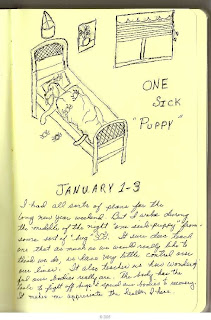 ONE
SICK
"PUPPY"
JANUARY 1-3
I had all sorts of plans for the
long new year weekend. But I woke during
the middle of the night "one sick puppy" from
some sort of "bug"
one that as much as we would really like to
think we do, we have very little control over
our lives. It also teaches us how wonder-
ful our bodies really are. The body has the
tools to fight off bugs &
It makes me appreciate the health I have.